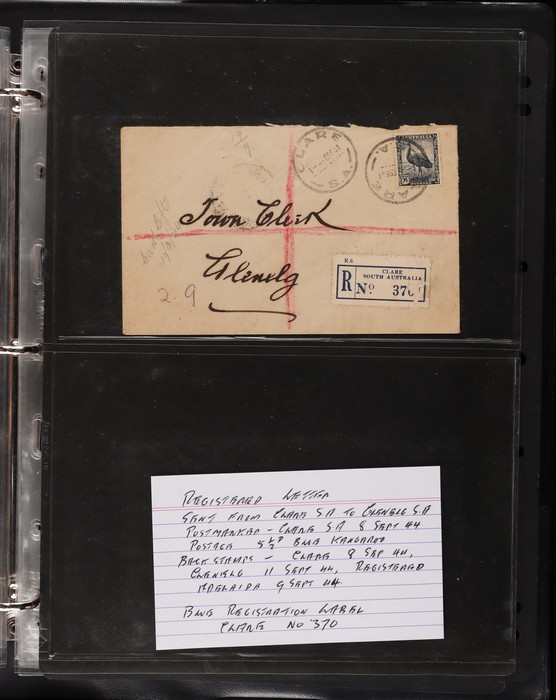 CLARE
S.A.
CLARE
S.A.
AUSTRALIA
19/9
Town Clerk
Glenelg
2.9
R.6
CLARE
SOUTH AUSTRALIA
R No 370
REGISTERED LETTER
SENT FROM CLARE SA TO GLENELG SA
POSTMARKED - CLARE SA 8 SEPT 44
POSTAGE 5½D BLUE KANGAROO
BACK STAMPS - CLARE 8 SEP 44,
GLENELG 11 SEPT 44, REGISTERED
ADELAIDE 9 SEPT 44.
BLUE REGISTRATION LABEL
CLARE NO 370